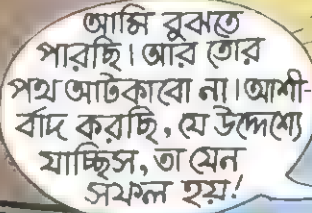 আমি বুঝতে
পারছি। আর তোর
পথ আটকাবো না। আশী-
র্বাদ করছি, যে উদ্দেশ্যে
যাচ্ছিস, তা যেন
সফল হয়!